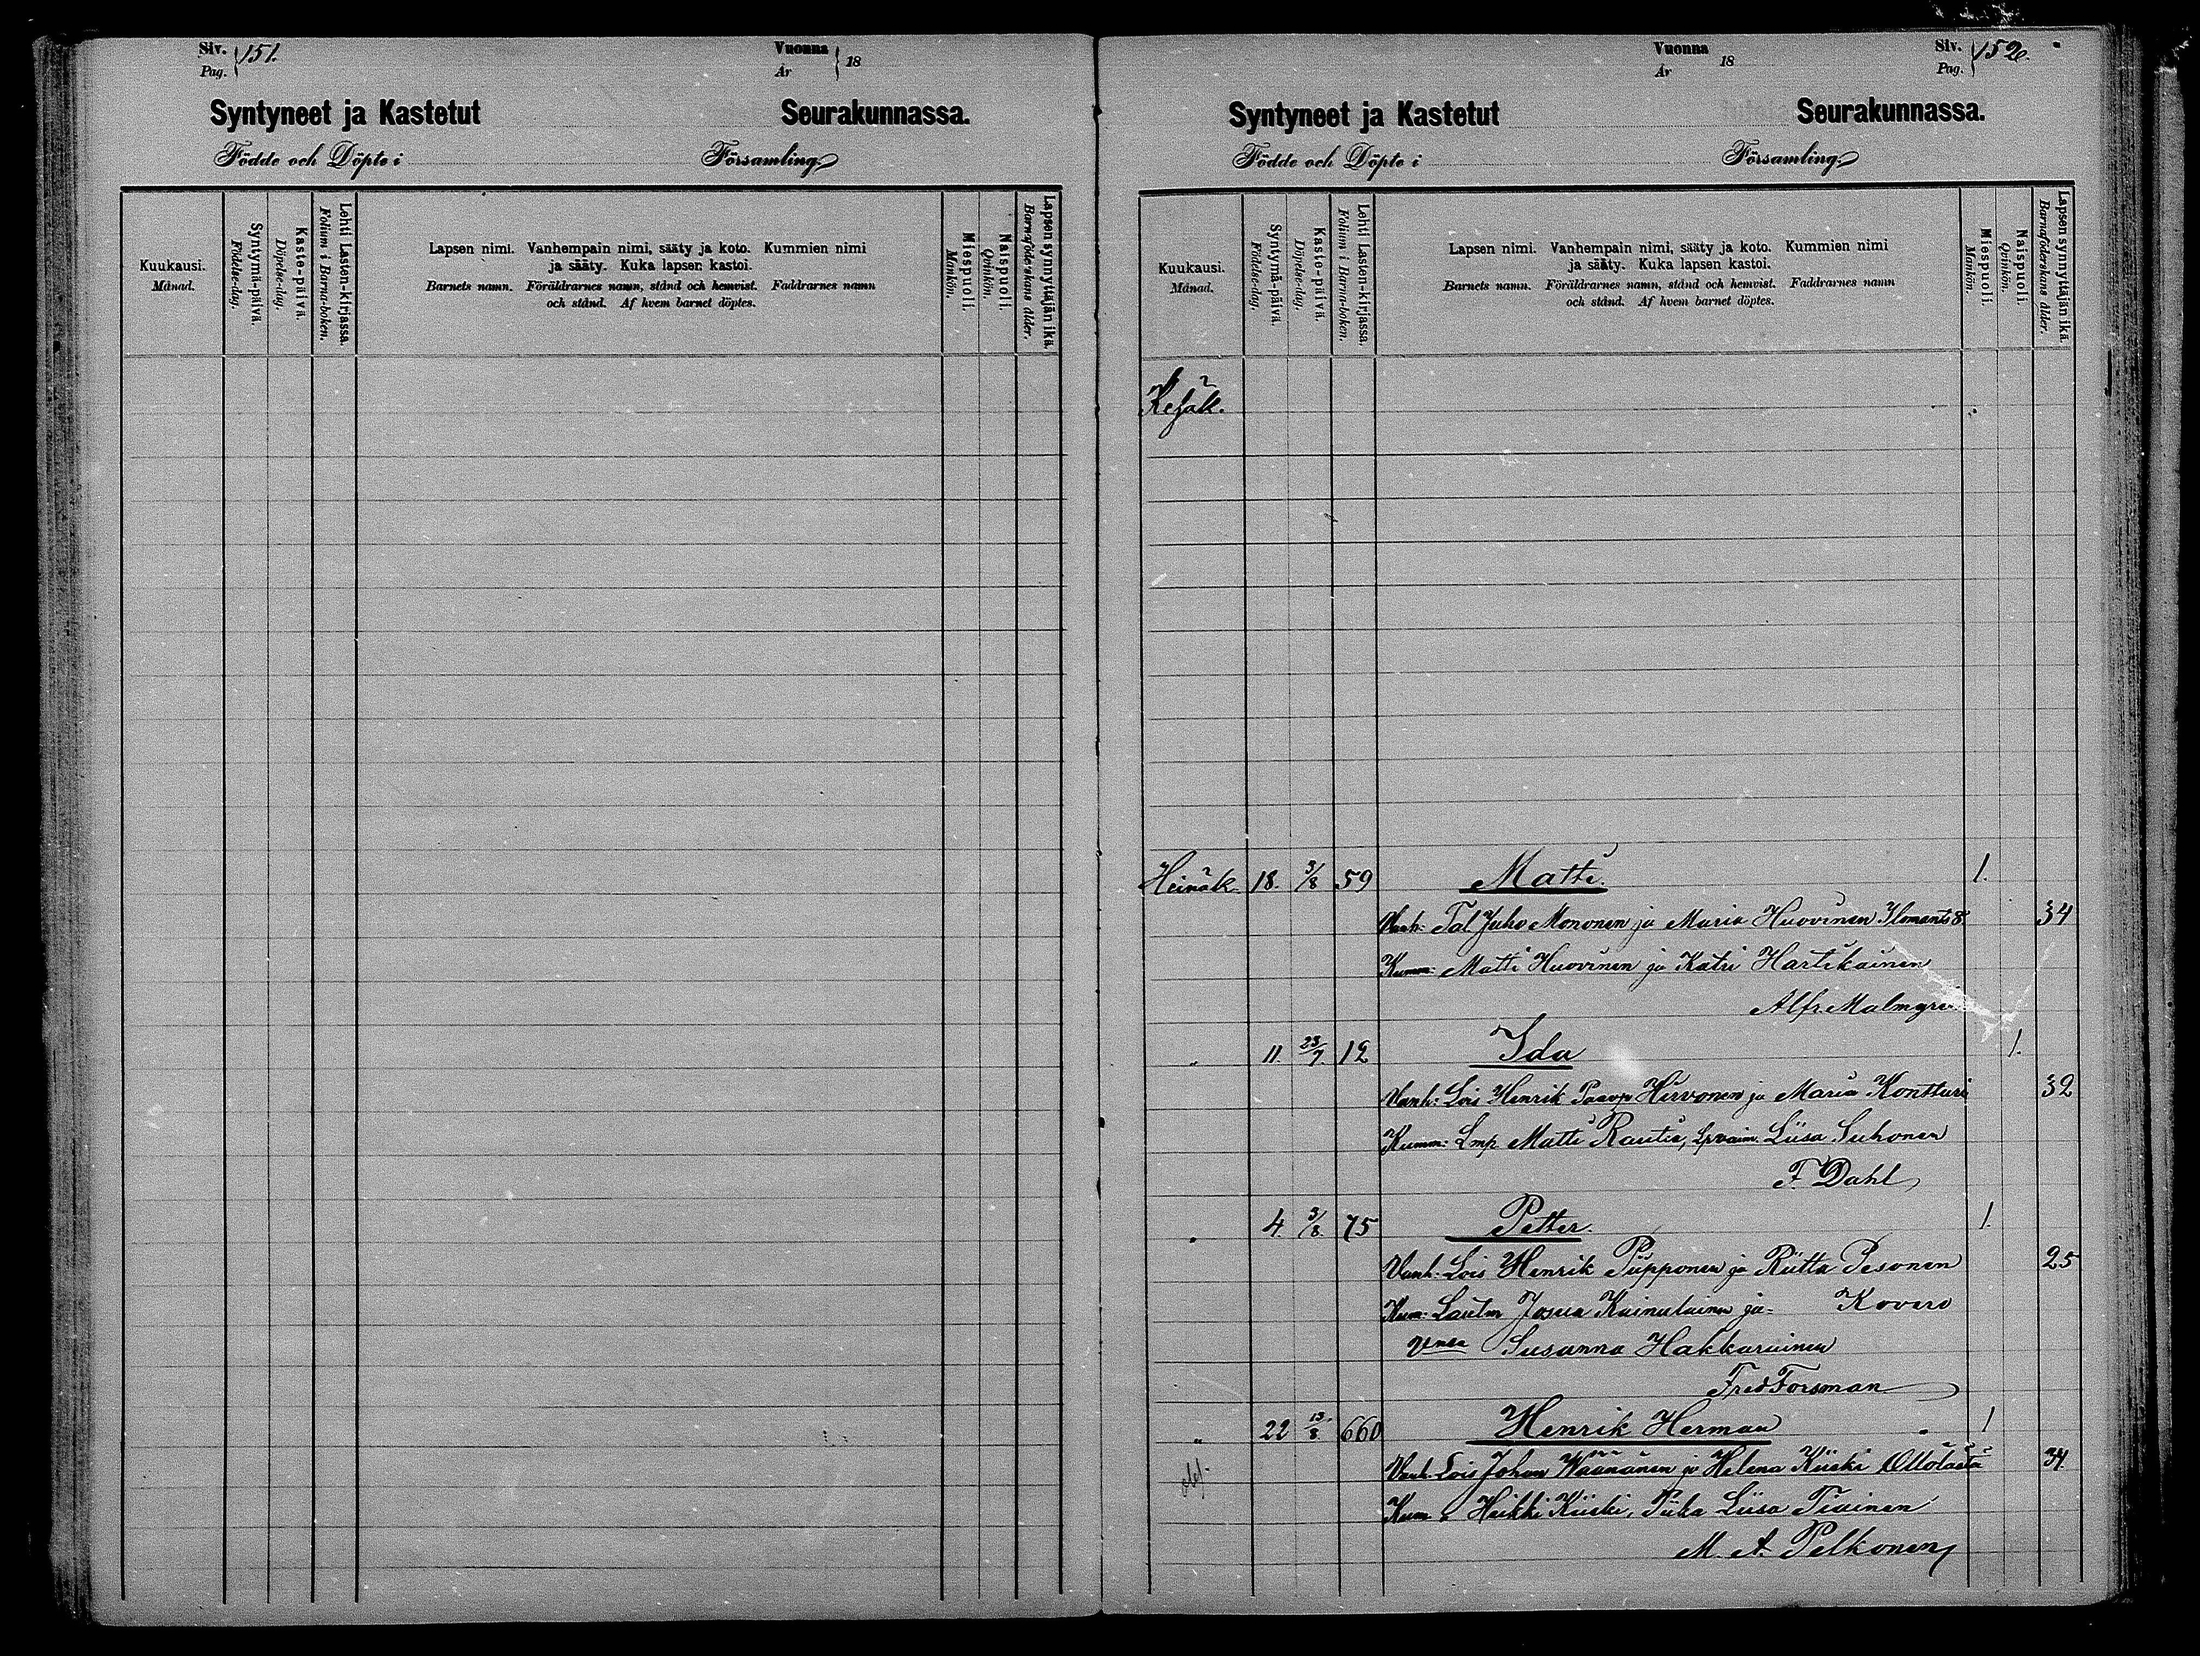 Siv. 151.
Pag.
Vuonna 18
År
Syntyneet ja Kastetut Seurakunnassa.
Födde och Döpte i Församling.
Kuukausi.
Månad.
Syntymä-päivä.
Födelse-dag.
Kaste-päivä.
Döpelse-dag.
Lehti Lasten-kirjassa.
Folium i Barna-boken.
Lapsen nimi. Vanhempain nimi, sääty ja koto. Kummien nimi
ja sääty. Kuka lapsen kastoi.
Barnets namn. Föräldrarnes namn, stånd och hemvist. Faddrarnes namn
och stånd. Af hvem barnet döptes.
Miespuoli.
Mankön.
Naispuoli.
Qvinkön.
Lapsen synnyttäjän ikä.
Barnaföderskans ålder.
Vuonna 18
År
Siv. 152.
Pag.
Syntyneet ja Kastetut Seurakunnassa.
Födde och Döpte i Församling.
Kuukausi.
Månad.
Syntymä-päivä.
Födelse-dag.
Kaste-päivä.
Döpelse-dag.
Lehti Lasten-kirjassa.
Folium i Barna-boken.
Lapsen nimi. Vanhempain nimi, sääty ja koto. Kummien nimi
ja sääty. Kuka lapsen kastoi.
Barnets namn. Föräldrarnes namn, stånd och hemvist. Faddrarnes namn
och stånd. Af hvem barnet döptes.
Miespuoli.
Mankön.
Naispuoli.
Qvinkön.
Lapsen synnyttäjän ikä.
Barnaföderskans ålder.
Kesäk.
Heinäk. 18. 3/8 59 Matti. 1.
Vanh: Tal. Juho Mononen ja Maria Huovinen Ilomants 8. 34
Kumm: Matti Huovinen ja Katri Hartikainen
Alfr. Malmgre
" 11. 23/7. 12 Ida 1.
Vanh: Lois Henrik Paavp Hirvonen ja Maria Kontturi 32
Kumm: Lmp. Matti Rautio, Lpvaim. Liisa Suhonen
F. Dahl
" 4. 3/8. 75 Petter. 1.
Vanh: Lois Henrik Piipponen ja Riitta Pesonen 25
Kum: Lautm Josua Kainulainen ja Kovero
Vnsa Susanna Hakkarainen
Fred Forsman
" 22 13/8. 660 Henrik Herman " 1
Vanh. Lois Johan Väänänen ja Helena Kiiski Ottolasta 34.
Kum " Heikki Kiiski, Piika Liisa Tiainen
M. A. Pelkonen